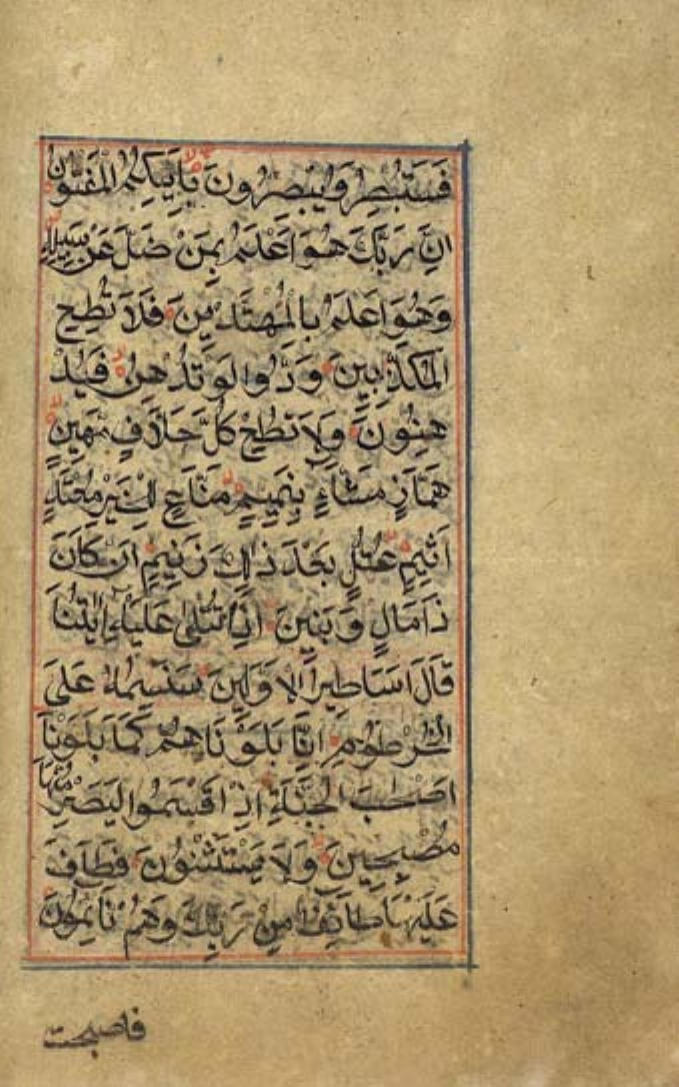 فَسَتُبْصِرُ وَيُبْصِرُونَ بِاَيِّكُمُ الْمَفْتُوْنُ
اِنَّ رَبَّكَ هُوَ اَعْلَمُ بِمَنْ ضَلَّ عَنْ سَبِيْلِهٖ
وَهُوَ اَعْلَمُ بِالْمُهْتَدِيْنَ فَلَا تُطِعِ
الْمُكَذِّبِيْنَ وَدُّوا لَوْ تُدْهِنُ فَيُدْ
هِنُوْنَ وَلَا تُطِعْ كُلَّ حَلَّافٍ مَّهِيْنٍ
هَمَّازٍ مَشَّاءٍ بِنَمِيْمٍ مَنَّاعٍ لِلْخَيْرِ مُعْتَدٍ
اَثِيْمٍ عُتُلٍّ بَعْدَ ذٰلِكَ زَنِيْمٍ اَنْ كَانَ
ذَا مَالٍ وَبَنِيْنَ اِذَا تُتْلٰى عَلَيْهِ اٰيٰتُنَا
قَالَ اَسَاطِيْرُ الْاَوَّلِيْنَ سَنَسِمُهُ عَلَى
الْخُرْطُوْمِ اِنَّا بَلَوْنَاهُمْ كَمَا بَلَوْنَا
اَصْحٰبَ الْجَنَّةِ اِذْ اَقْسَمُوا لَيَصْرِمُنَّهَا
مُصْبِحِيْنَ وَلَا يَسْتَثْنُوْنَ فَطَافَ
عَلَيْهَا طَائِفٌ مِنْ رَبِّكَ وَهُمْ نَائِمُوْنَ
فاصبحت